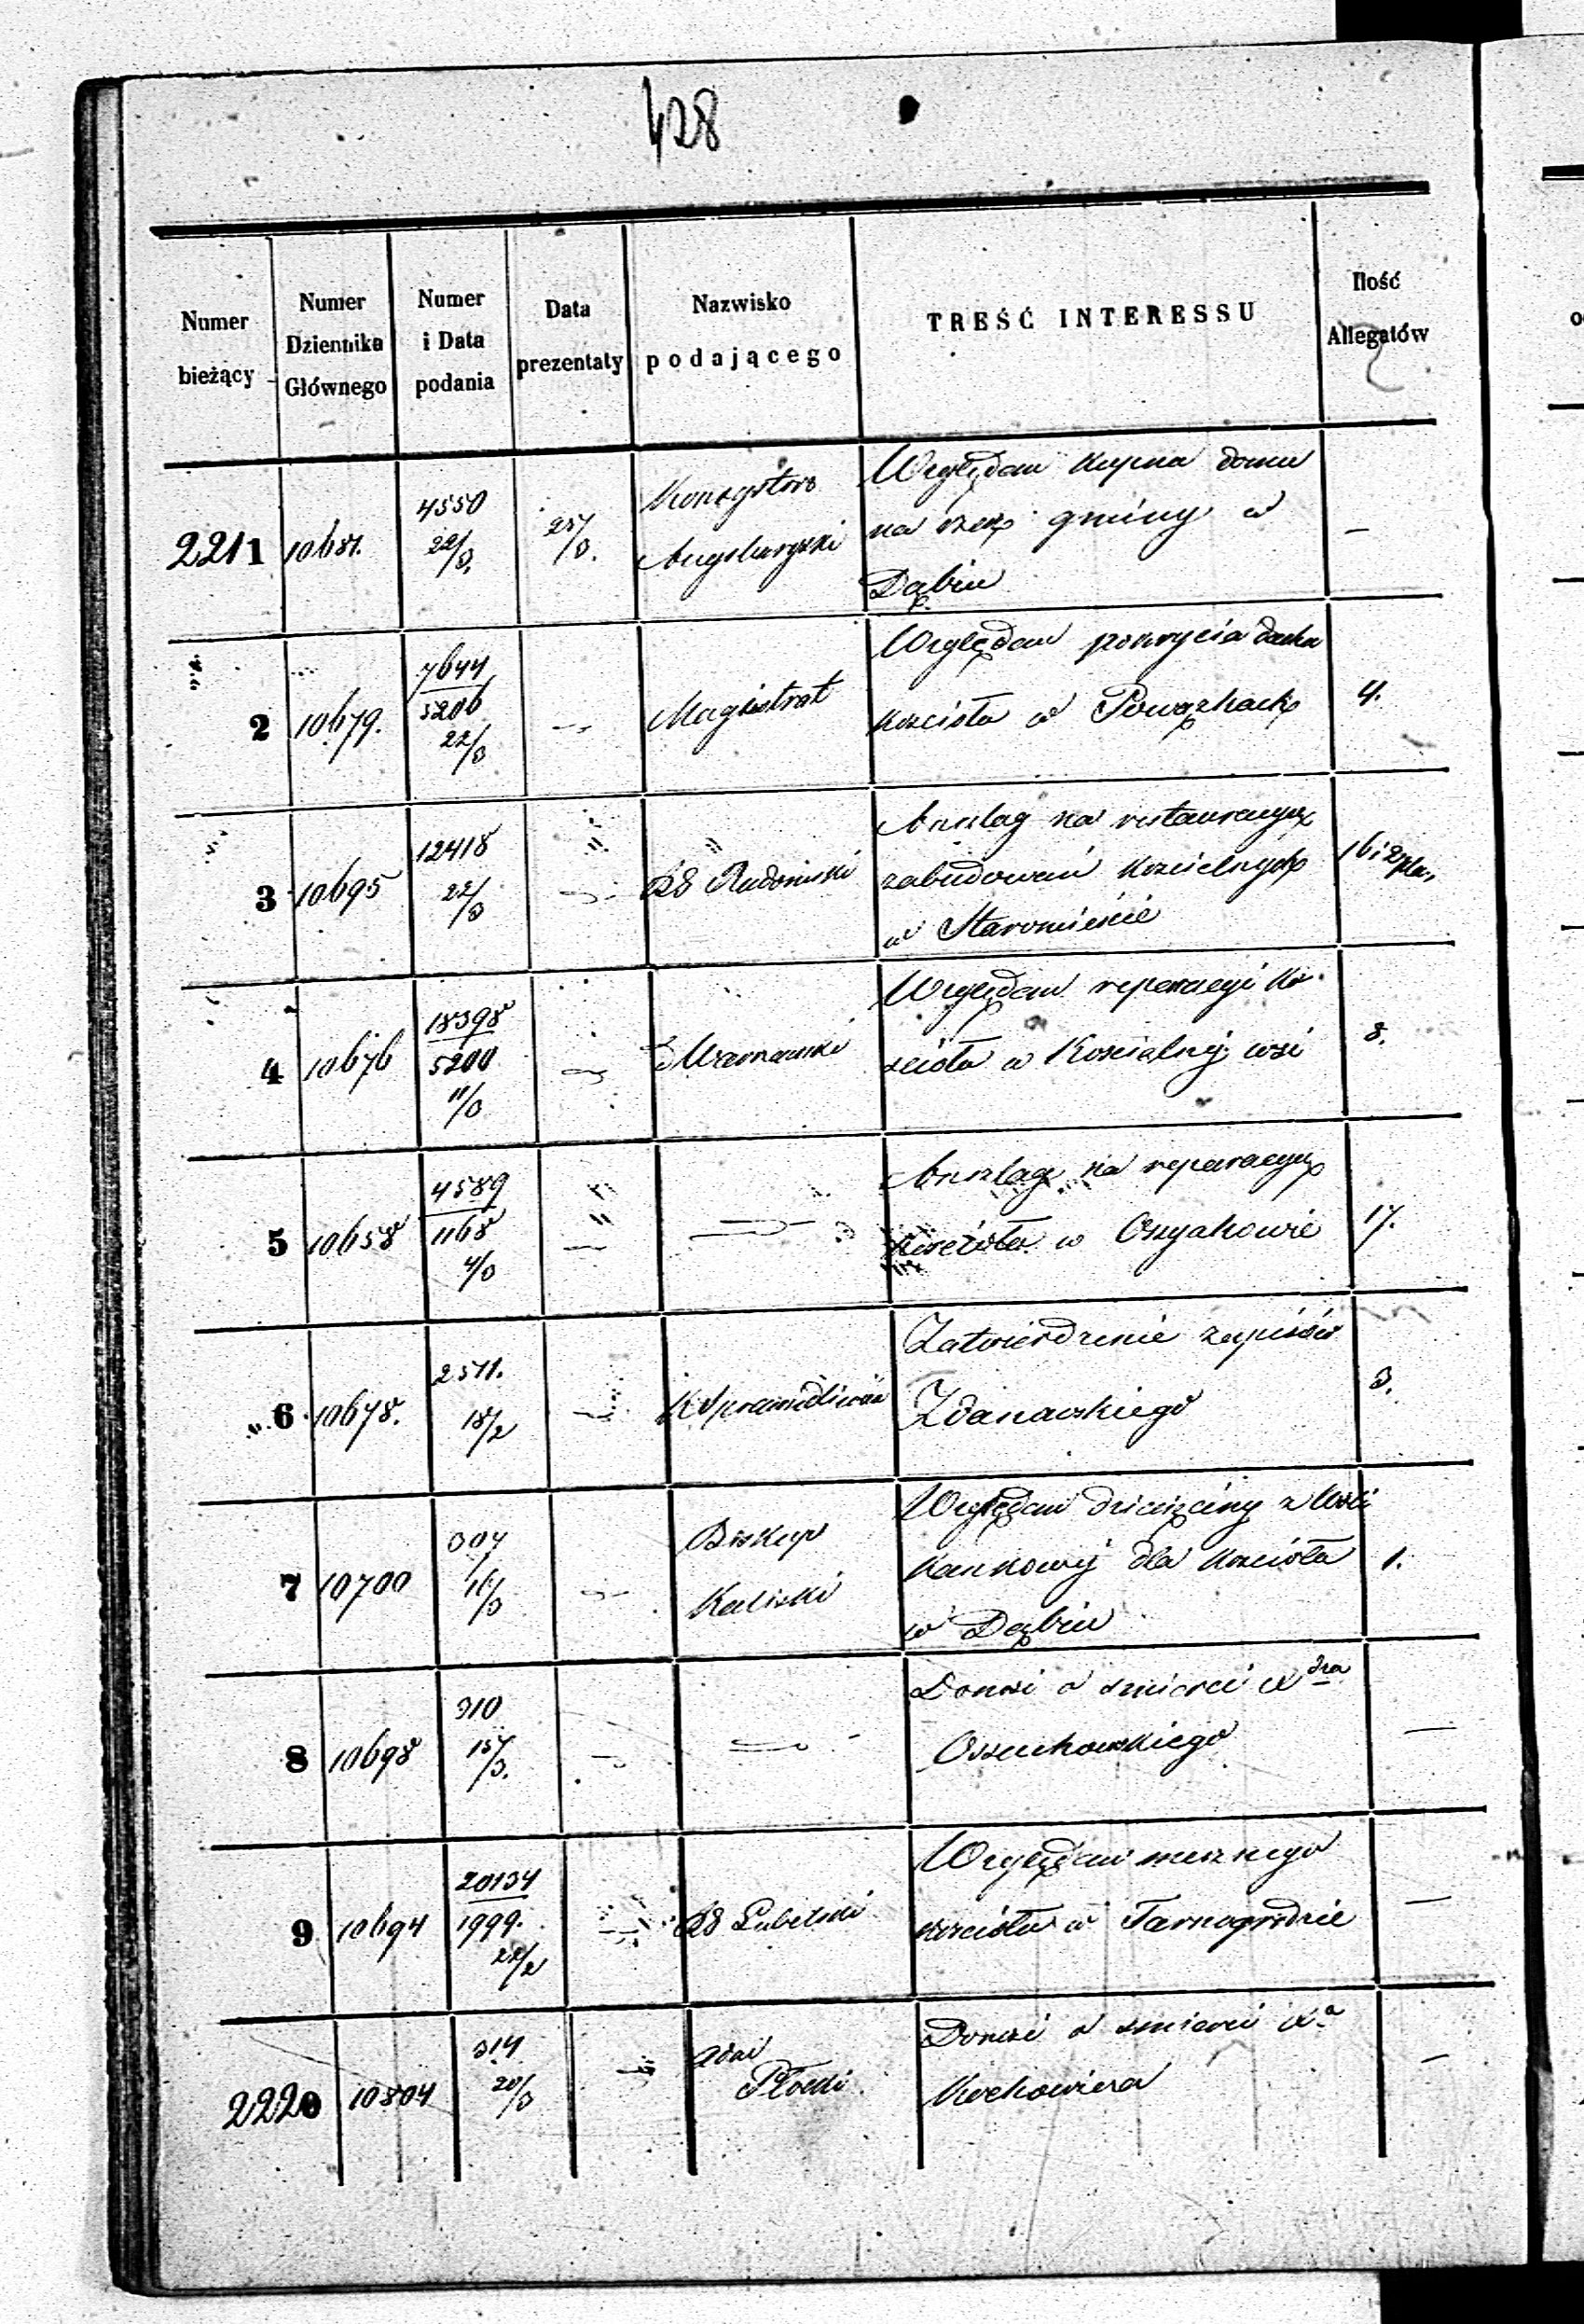 428
Numer bieżący
Numer Dziennika Głównego
Numer i Data podania
Data prezentaty
Nazwisko podającego
TREŚĆ INTERESSU
Ilość Allegatów
2211 10681. 4550 22/3. 25/3. Konsystorz Augsburgski Względem kupna domu
na rzecz gminy w
Dąbiu —
2 10679. 7644 5206 22/3 — Magistrat Względem pokrycia dachu
kościoła w Powązkach 4.
3 10695 12418 22/3 — RG Radomski Anszlag na restauracyę
zabudowań kościelnych
w Staromieście 16 i 2 plan,
4 10676 18398 5200 11/3 — Warszawski Względem reperacyi ko
ścioła w Kościelnej wsi 8.
5 10658 4589 1168 4/3 — Anszlag na reperacyę
kościoła w Osyakowie 17.
6 10678. 2571. 18/2 — K Sprawiedliwoś Zatwierdzenie zapisów
Zdanowskiego 3.
7 10700 307 16/3 — Biskup
Kaliski Względem dziesięciny z Wsi
dla kościoła
w Dąbiu 1.
8 10698 310 15/3. — Donosi o śmierci Xdza
Ossuchowskiego —
9 10694 20134 1999. 22/2 RG Lubelski Względem mesznego
kościoła w Tarnogrodzie —
2220 10804 314 20/3 — Adm
Płocki. Donosi o śmierci Xa
—